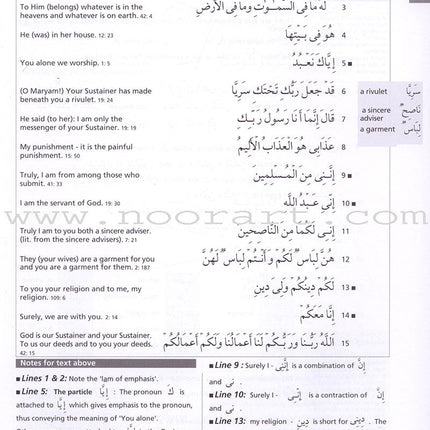 To Him (belongs) whatever is in the
heavens and whatever is on earth. 42: 4
لَهُ مَا فِى السَّمٰوٰتِ وَمَا فِى الْاَرْضِ
3
He (was) in her house. 12: 23
هُوَ فِى بَيْتِهَا
4
You alone we worship. 1: 5
اِيَّاكَ نَعْبُدُ
5 ■
(O Maryam!) Your Sustainer has made
beneath you a rivulet. 19: 24
قَدْ جَعَلَ رَبُّكِ تَحْتَكِ سَرِيًّا
6
a rivulet سَرِيًّا
He said (to her): I am only the
messenger of your Sustainer. 19: 19
قَالَ اِنَّمَا اَنَا رَسُولُ رَبِّكِ
7
a sincere
adviser نَاصِحٌ
a garment لِبَاسٌ
My punishment - it is the painful
punishment. 15: 50
عَذَابِى هُوَ الْعَذَابُ الْاَلِيمُ
8
Truly, I am from among those who
submit. 41: 33
اِنَّنِى مِنَ الْمُسْلِمِينَ
9 ■
I am the servant of God. 19: 30
اِنِّى عَبْدُ اللّٰهِ
10 ■
www.noorart.com
Truly I am to you both a sincere adviser.
(lit. from the sincere advisers). 7: 21
اِنِّى لَكُمَا مِنَ النَّاصِحِينَ
11
They (your wives) are a garment for you
and you are a garment for them. 2: 187
هُنَّ لِبَاسٌ لَكُمْ وَاَنْتُمْ لِبَاسٌ لَهُنَّ
12
To you your religion and to me, my
religion. 109: 6
لَكُمْ دِينُكُمْ وَلِىَ دِينِ
13 ■
Surely, we are with you. 2: 14
اِنَّا مَعَكُمْ
14 ■
God is our Sustainer and your Sustainer.
To us our deeds and to you your deeds.
42: 15
اَللّٰهُ رَبُّنَا وَرَبُّكُمْ لَنَا اَعْمَالُنَا وَلَكُمْ اَعْمَالُكُمْ
15
Notes for text above
■ Lines 1 & 2: Note the 'lam of emphasis'.
■ Line 5: The particle اِيَّا : The pronoun كَ is
attached to اِيَّا which gives emphasis to the pronoun,
thus conveying the meaning of 'You alone'.
■ Line 9 : Surely I - اِنَّنِى is a combination of اِنَّ
and نِى .
■ Line 10: Surely I - اِنِّى is a contraction of اِنَّ
and نِى .
■ Line 13: my religion - دِينِ is short for دِينِى . The